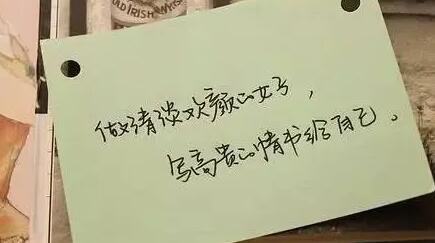 OLD IRISH WHISK
做清淡欢颜的女子，
写高贵的情书给自己。